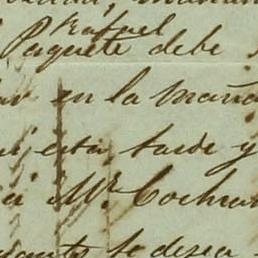 Rafael
Paquete debe
en la maña
esta tarde y
á Mr. Cochra
se desea